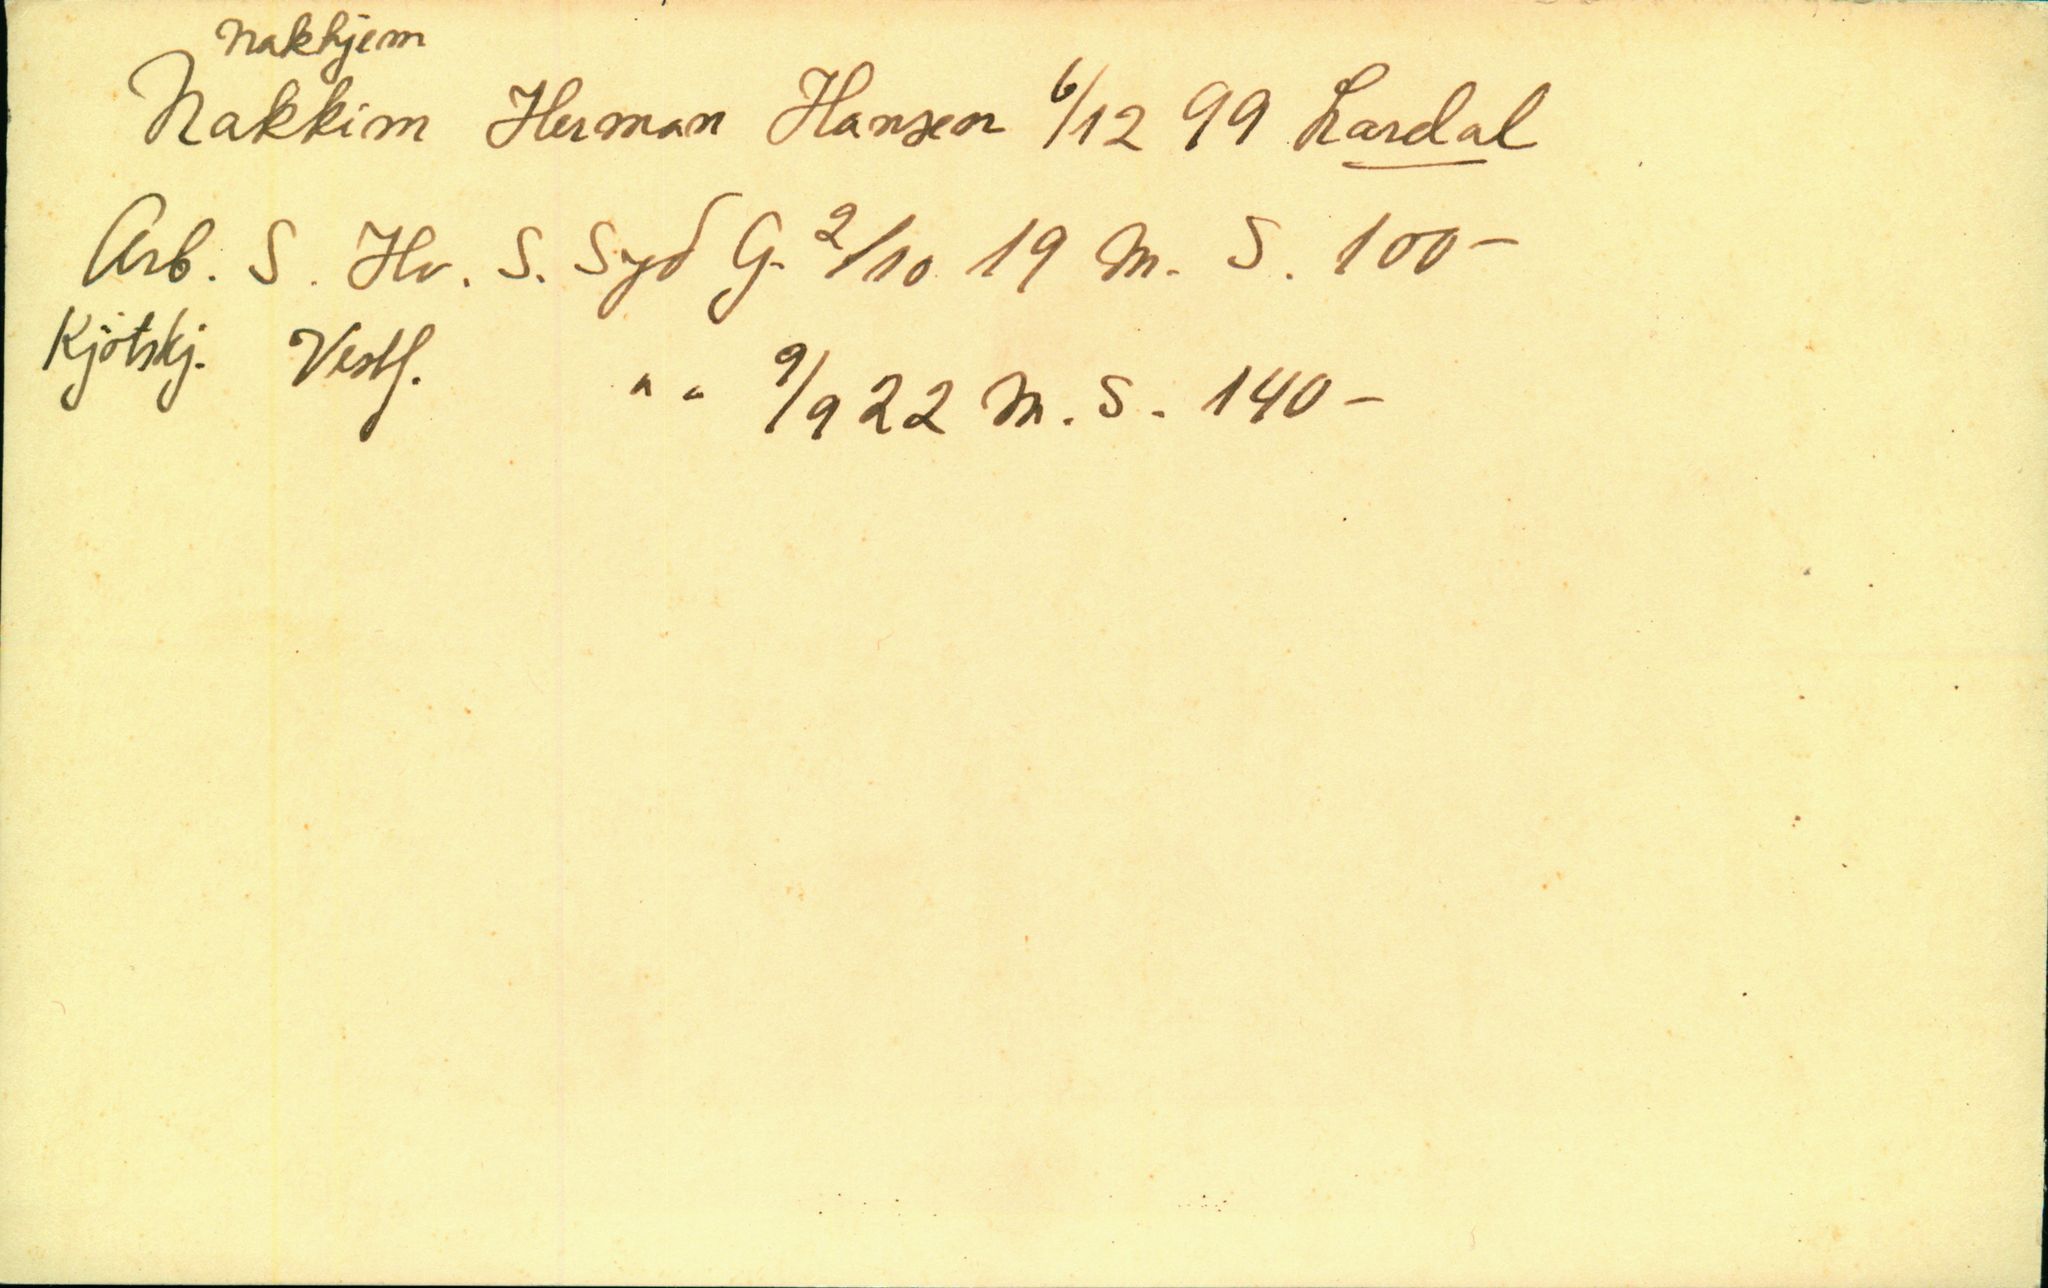 Nakhjem
Nakkim Herman Hansen 6/12 99 Lardal
Arb. S. Hv. S. Syd G. 2/10 19 M. S. 100-
Kjötskj. Vestf. " " 9/9 22 M. S. 140-